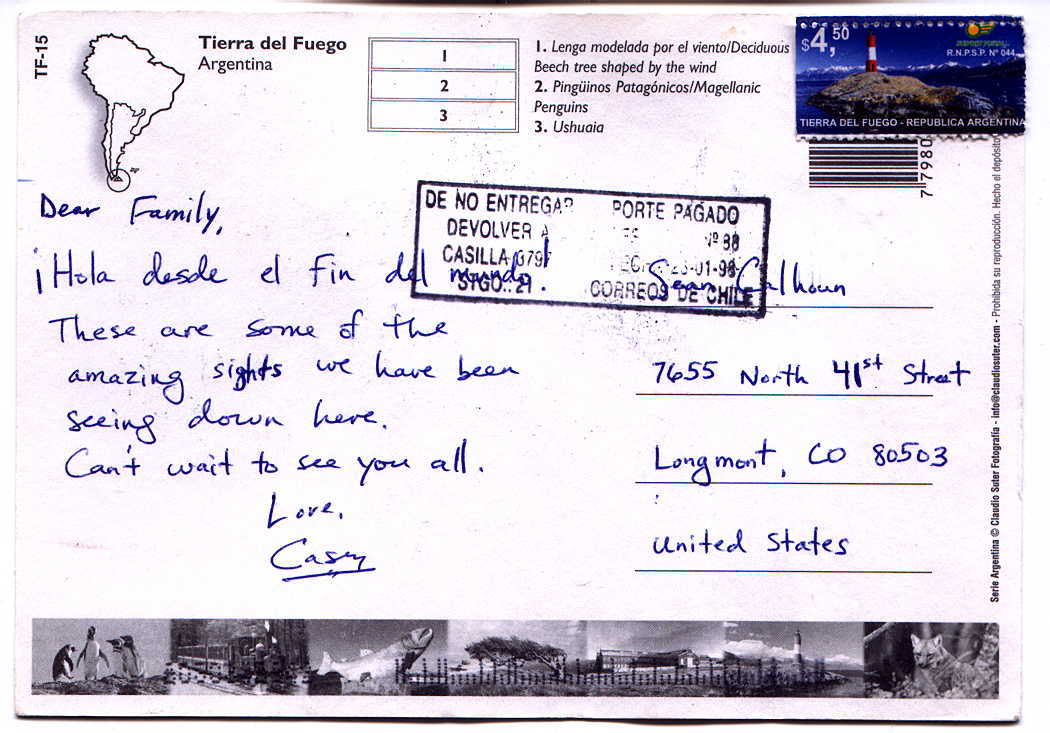 TF-15
Tierra del Fuego
Argentina
1
2
3
1. Lenga modelada por el viento/Deciduous
Beech tree shaped by the wind
2. Pingüinos Patagónicos/Magellanic
Penguins
3. Ushuaia
$4,50
R.N.P.S.P. Nº 044
TIERRA DEL FUEGO - REPUBLICA ARGENTINA
7 7980
DE NO ENTREGAR PORTE PAGADO
DEVOLVER A Nº 38
CASILLA 01-98
STGO. 21 CORREOS DE CHILE
Dear Family,
¡Hola desde el fin del mundo!
These are some of the
amazing sights we have been
seeing down here.
Can't wait to see you all.
Love,
Casey
Sean Calhoun
7655 North 41st Street
Longmont, CO 80503
United States
Serie Argentina © Claudio Suter Fotografía - info@claudiosuter.com - Prohibida su reproducción. Hecho el depósito